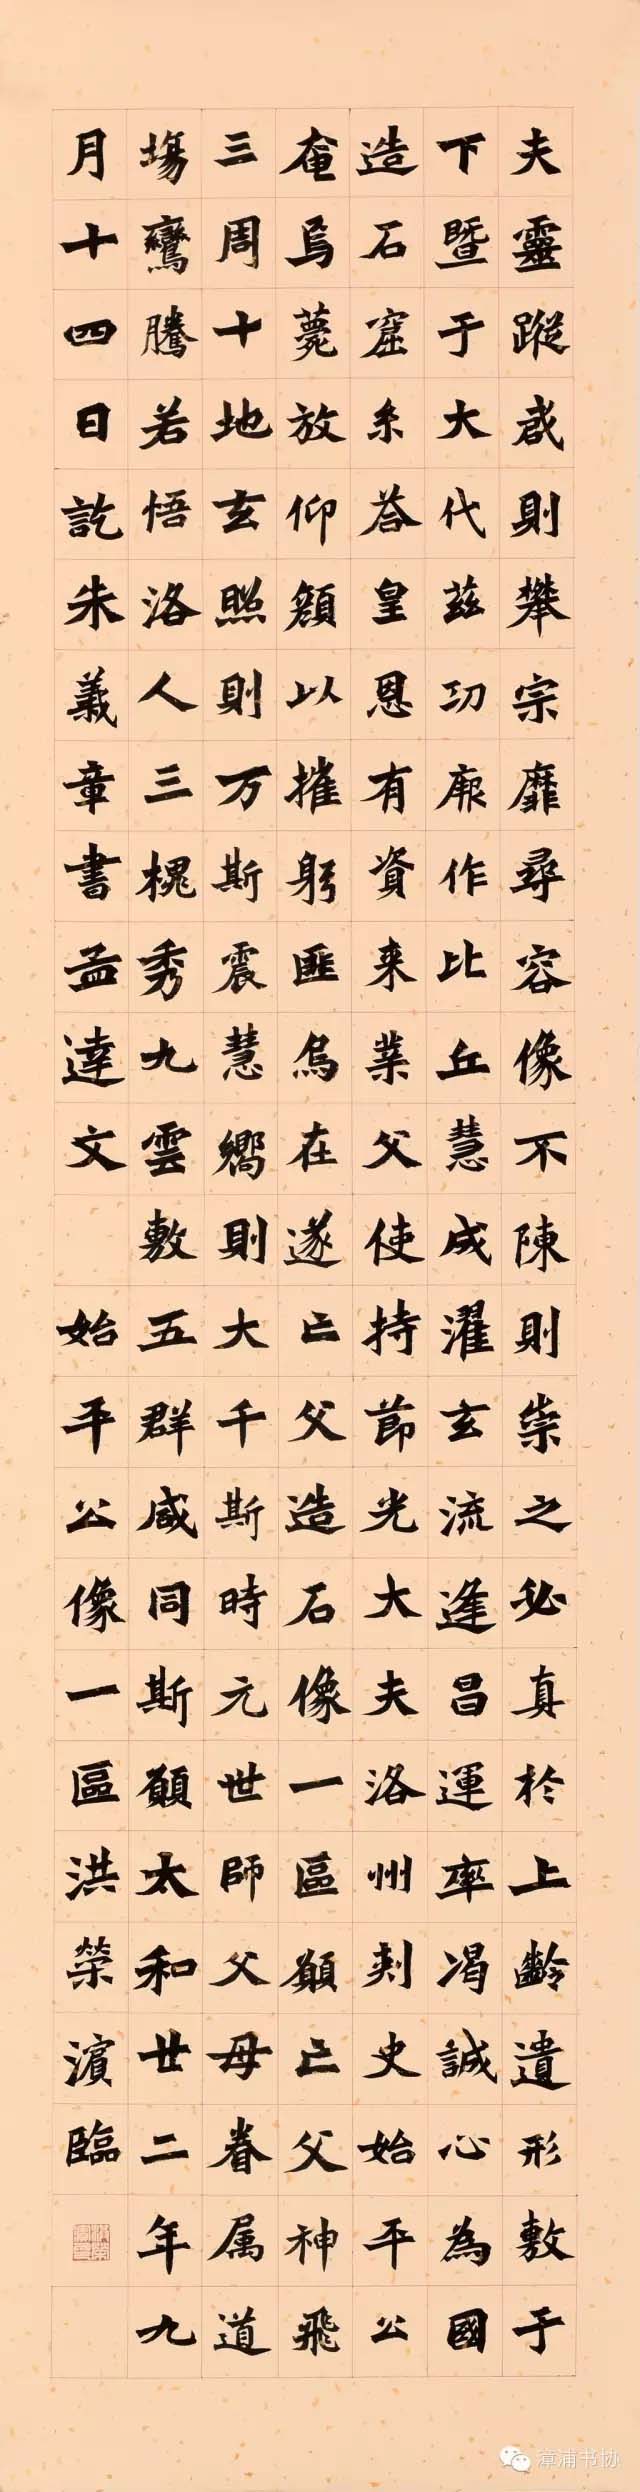 夫靈蹤啟則攀宗靡尋容像不陳則崇之必真於上齡遺形敷于
下暨于大代茲功厥作比丘慧成濯玄流逢昌運率渴誠心為國
造石窟糸荅皇恩有資来業父使持節光大夫洛州刾史始平公
奄焉薨放仰顏以摧躬匪烏在遂亡父造石像一區願亡父神飛
三周十地玄照則万斯震慧嚮則大千斯時元世師父母眷属道
塲鸞騰若悟洛人三槐秀九雲敷五群咸同斯願太和廿二年九
月十四日訖朱義章書孟達文 始平公像一區洪榮濱臨
漳浦书协